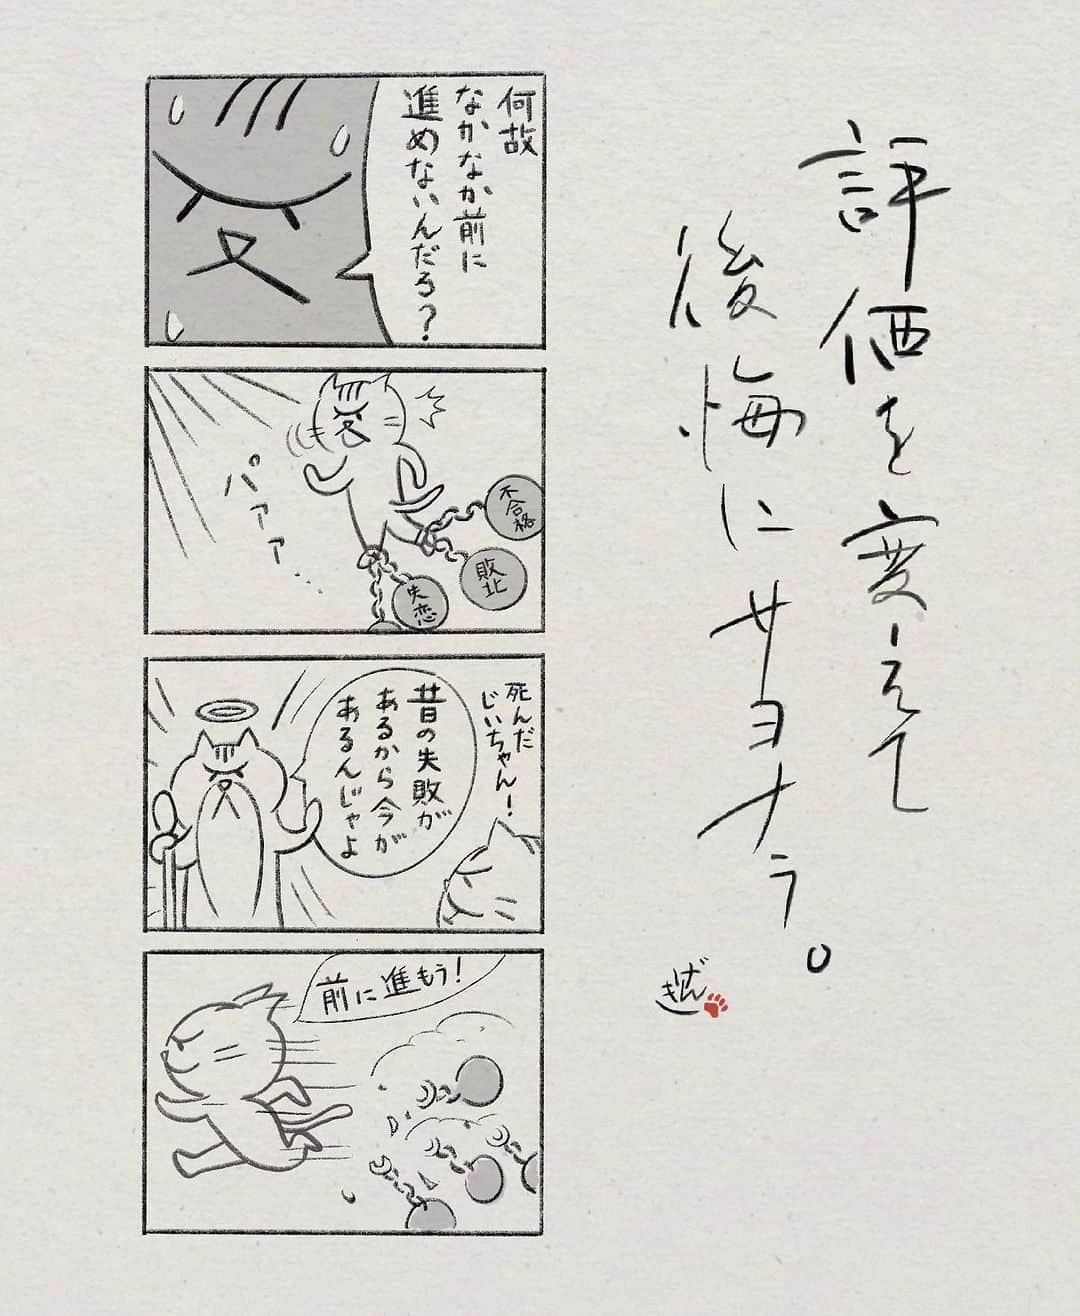 評価を変えて
後悔にサヨナラ。
げん
き
何故
なかなか前に
進めないんだろ?
パァァァ…
不合格
敗北
失恋
死んだ
じいちゃん!
昔の失敗が
あるから今が
あるんじゃよ
前に進もう!